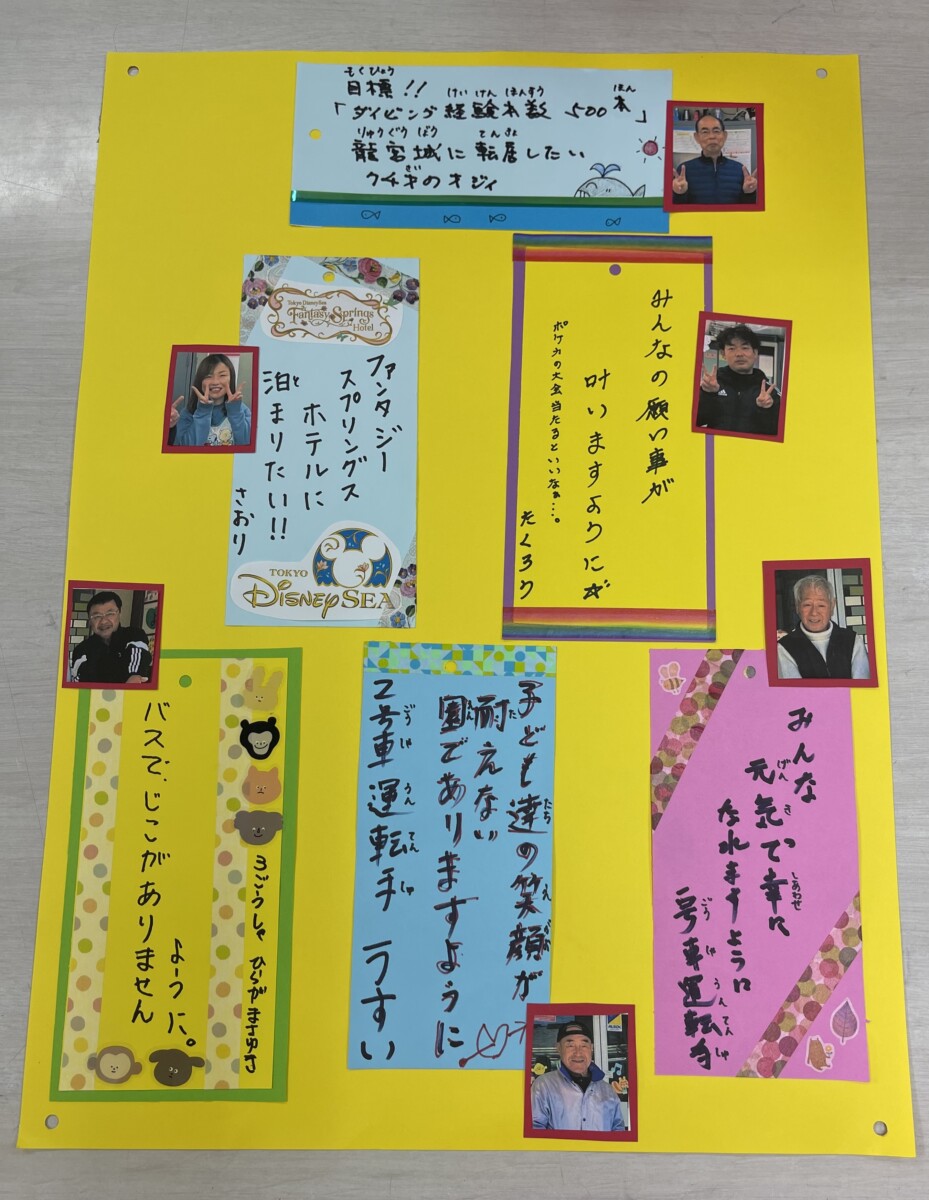 もくひょう
目標!!
けいけんほんすう ほん
「ダイビング経験本数 500本」
りゅうぐうじょう てんきょ
龍宮城に転居したい
クチギのオジィ
みんなの願い事が
叶いますようにが
ポケカの大会当たるといいなぁ…。
たくろう
Tokyo DisneySea
Fantasy Springs
Hotel
ファンタジー
スプリングス
ホテルに
泊まりたい!!
さおり
TOKYO
DISNEY SEA
みんな
元気で幸に
なれますように
号車運転手
子ども達の笑顔が
耐えない
園でありますように
2号車運転手 うすい
バスで、じこがありません
ように。
3ごうしゃ ひらがまさゆき